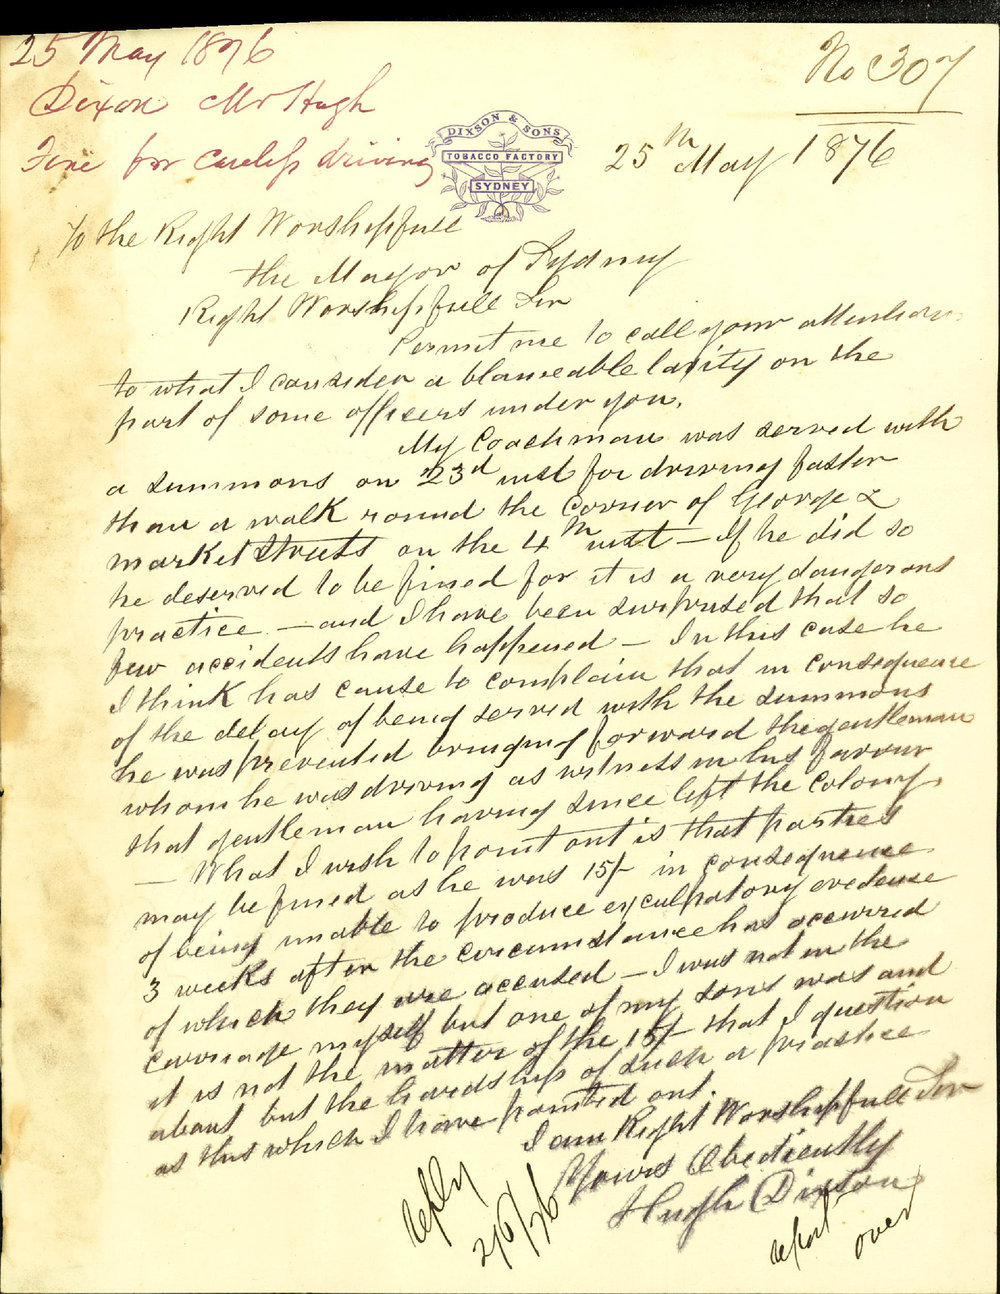 25 May 1876
Dixon Mr Hugh
Fine for careless driving
No 307
DIXSON & SONS
TOBACCO FACTORY
SYDNEY
25th May 1876
To the Right Worshipfull
the Mayor of Sydney
Right Worshipfull Sir
Permit me to call your attention
to what I consider a blameable laxity on the
part of some officers under you.
My Coachman was served with
a summons on 23d inst for driving faster
than a walk round the Corner of George &
market Streets on the 4th inst – If he did so
he deserved to be fined for it is a very dangerous
practice – and I have been surprised that so
few accidents have happened – In this case he
I think has cause to complain that in consequence
of the delay of being served with the summons
he was prevented bringing forward the gentleman
whom he was driving as witness in his favour
that gentleman having since left the Colony.
– What I wish to point out is that parties
may be fined as he was 15/- in consequence
of being unable to produce exculpatory evedence
3 weeks after the circumstance has occurred
of which they are accused – I was not in the
carriage myself but one of my sons was and
it is not the matter of the 15/- that I question
about but the hardship of such a practice
as this which I have pointed out.
I am Right Worshipfull Sir
Yours Obediently
Hugh Dixson
reply
2/6/76
report
over